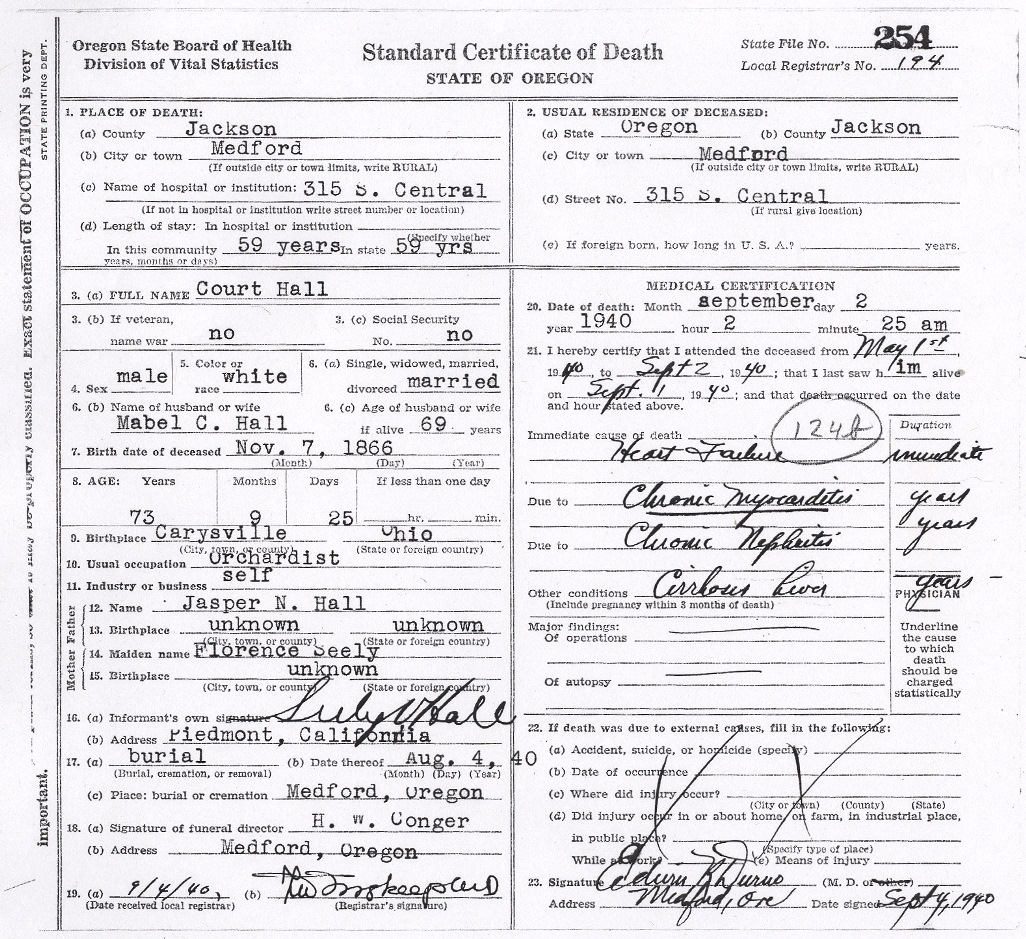 Oregon State Board of Health
Division of Vital Statistics
Standard Certificate of Death
STATE OF OREGON
State File No. 254
Local Registrar's No. 194
OCCUPATION is very
Exact statement of
important.
STATE PRINTING DEPT.
1. PLACE OF DEATH:
(a) County Jackson
(b) City or town Medford
(If outside city or town limits, write RURAL)
(c) Name of hospital or institution: 315 S. Central
(If not in hospital or institution write street number or location)
(d) Length of stay: In hospital or institution
(Specify whether
In this community 59 years In state 59 yrs
years, months or days)
2. USUAL RESIDENCE OF DECEASED:
(a) State Oregon (b) County Jackson
(c) City or town Medford
(If outside city or town limits, write RURAL)
(d) Street No. 315 S. Central
(If rural give location)
(e) If foreign born, how long in U. S. A.? years.
3. (a) FULL NAME Court Hall
3. (b) If veteran, 3. (c) Social Security
name war no No. no
4. Sex male 5. Color or race white 6. (a) Single, widowed, married, divorced married
6. (b) Name of husband or wife 6. (c) Age of husband or wife
Mabel C. Hall if alive 69 years
7. Birth date of deceased Nov. 7, 1866
(Month) (Day) (Year)
8. AGE: Years Months Days If less than one day
73 9 25 hr. min.
9. Birthplace Carysville Ohio
(City, town, or county) (State or foreign country)
10. Usual occupation Orchardist
11. Industry or business self
Father
12. Name Jasper N. Hall
13. Birthplace unknown unknown
(City, town, or county) (State or foreign country)
Mother
14. Maiden name Florence Seely
15. Birthplace unknown
(City, town, or county) (State or foreign country)
16. (a) Informant's own signature Hall
(b) Address Piedmont, California
17. (a) burial (b) Date thereof Aug. 4, 40
(Burial, cremation, or removal) (Month) (Day) (Year)
(c) Place: burial or cremation Medford, Oregon
18. (a) Signature of funeral director H. W. Conger
(b) Address Medford, Oregon
19. (a) 9/4/40, (b)
(Date received local registrar) (Registrar's signature)
MEDICAL CERTIFICATION
20. Date of death: Month september day 2
year 1940 hour 2 minute 25 am
21. I hereby certify that I attended the deceased from May 1st,
1940, to Sept 2, 1940; that I last saw him alive
on Sept. 1, 1940; and that death occurred on the date
and hour stated above.
Duration
Immediate cause of death 124b
Heart Failure immediate
Due to Chronic Myocarditis years
Due to Chronic Nephritis years
Other conditions Cirrhosis Liver years
(Include pregnancy within 3 months of death)
PHYSICIAN
Major findings:
Of operations
Of autopsy
Underline
the cause
to which
death
should be
charged
statistically
22. If death was due to external causes, fill in the following:
(a) Accident, suicide, or homicide (specify)
(b) Date of occurrence
(c) Where did injury occur?
(City or town) (County) (State)
(d) Did injury occur in or about home, on farm, in industrial place,
in public place?
(Specify type of place)
While at work? (e) Means of injury
23. Signature Edwin R. Durno (M. D. or other)
Address Medford, Ore Date signed Sept 4, 1940